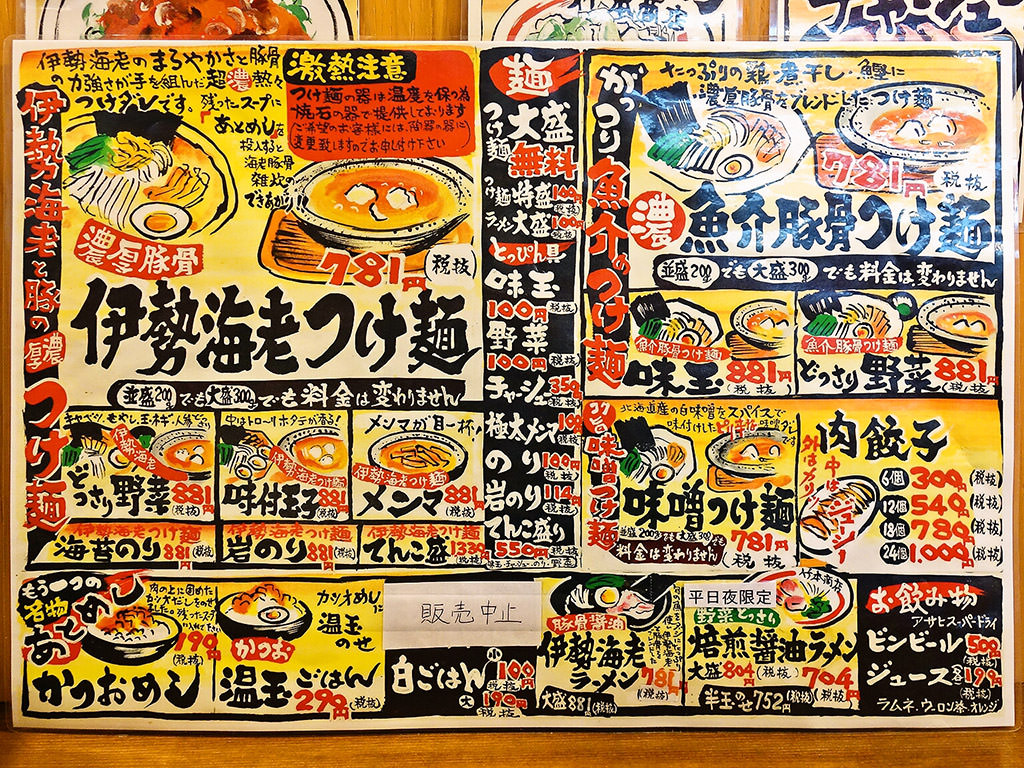 伊勢海老のまろやかさと豚骨
の力強さが手を組んだ超濃熱々
つけダレです。残ったスープに
あとめしを
投入すると
海老豚骨
雑炊の
できあがり!!
伊勢海老と豚の濃厚つけ麺
激熱注意
つけ麺の器は温度を保つ為
焼石の器で提供しております
(ご希望のお客様には、陶器の器に)
変更致しますのでお申し付け下さい
濃厚豚骨
781円
(税抜)
伊勢海老つけ麺
並盛200gでも大盛300gでも料金は変わりません
キャベツ、もやし、玉ネギ、人参どっさり
伊勢海老
どっさり野菜 881円(税抜)
中はトローリホタテが香る!
伊勢海老つけ麺
味付玉子 881円(税抜)
メンマが目一杯!
伊勢海老つけ麺
メンマ 881円(税抜)
伊勢海老つけ麺
海苔のり 881円(税抜)
伊勢海老つけ麺
岩のり 881円(税抜)
伊勢海老つけ麺
てんこ盛 1330円(税抜)
麺
つけ麺 大盛
無料
つけ麺 特盛 100円(税抜)
ラーメン大盛 100円(税抜)
とっぴん具
味玉
100円(税抜)
野菜
100円(税抜)
チャーシュー 350円(税抜)
極太メンマ 100円
のり 100円(税抜)
岩のり 114円(税抜)
てんこ盛り
550円(税抜)
味玉・チャーシュー・のり・野菜
がっつり魚介のつけ麺
たっぷりの鶏・煮干し・鰹に
濃厚豚骨をブレンドしたつけ麺
781円
税抜
濃 魚介豚骨つけ麺
並盛200gでも大盛300gでも料金は変わりません
魚介豚骨つけ麺
味玉 881円(税抜)
魚介豚骨つけ麺
どっさり野菜 881円(税抜)
味噌つけ麺
北海道産の白味噌をスパイスで
味付けした
味噌つけ麺
並盛200gでも大盛300gでも
料金は変わりません
781円
(税抜)
肉餃子
外はカリッ
中はジューシー
6個 300円(税抜)
12個 540円(税抜)
18個 780円(税抜)
24個 1,000円(税抜)
もう一つの
名物
あとめし
190円
(税抜)
かつおめし
カツオめしに
温玉
のせ
かつお
温玉ごはん
290円(税抜)
販売中止
白ごはん
小 100円(税抜)
大 190円(税抜)
豚骨醤油
伊勢海老
ラーメン 781円(税抜)
大盛881円(税抜)
平日夜限定
竹本商店
野菜どっさり
焙煎醤油ラーメン
大盛804円(税抜) 704円(税抜)
半玉のせ752円(税抜)
お飲み物
アサヒスーパードライ
ビンビール 500円(税抜)
ジュース(各) 190円(税抜)
ラムネ、ウーロン茶・オレンジ